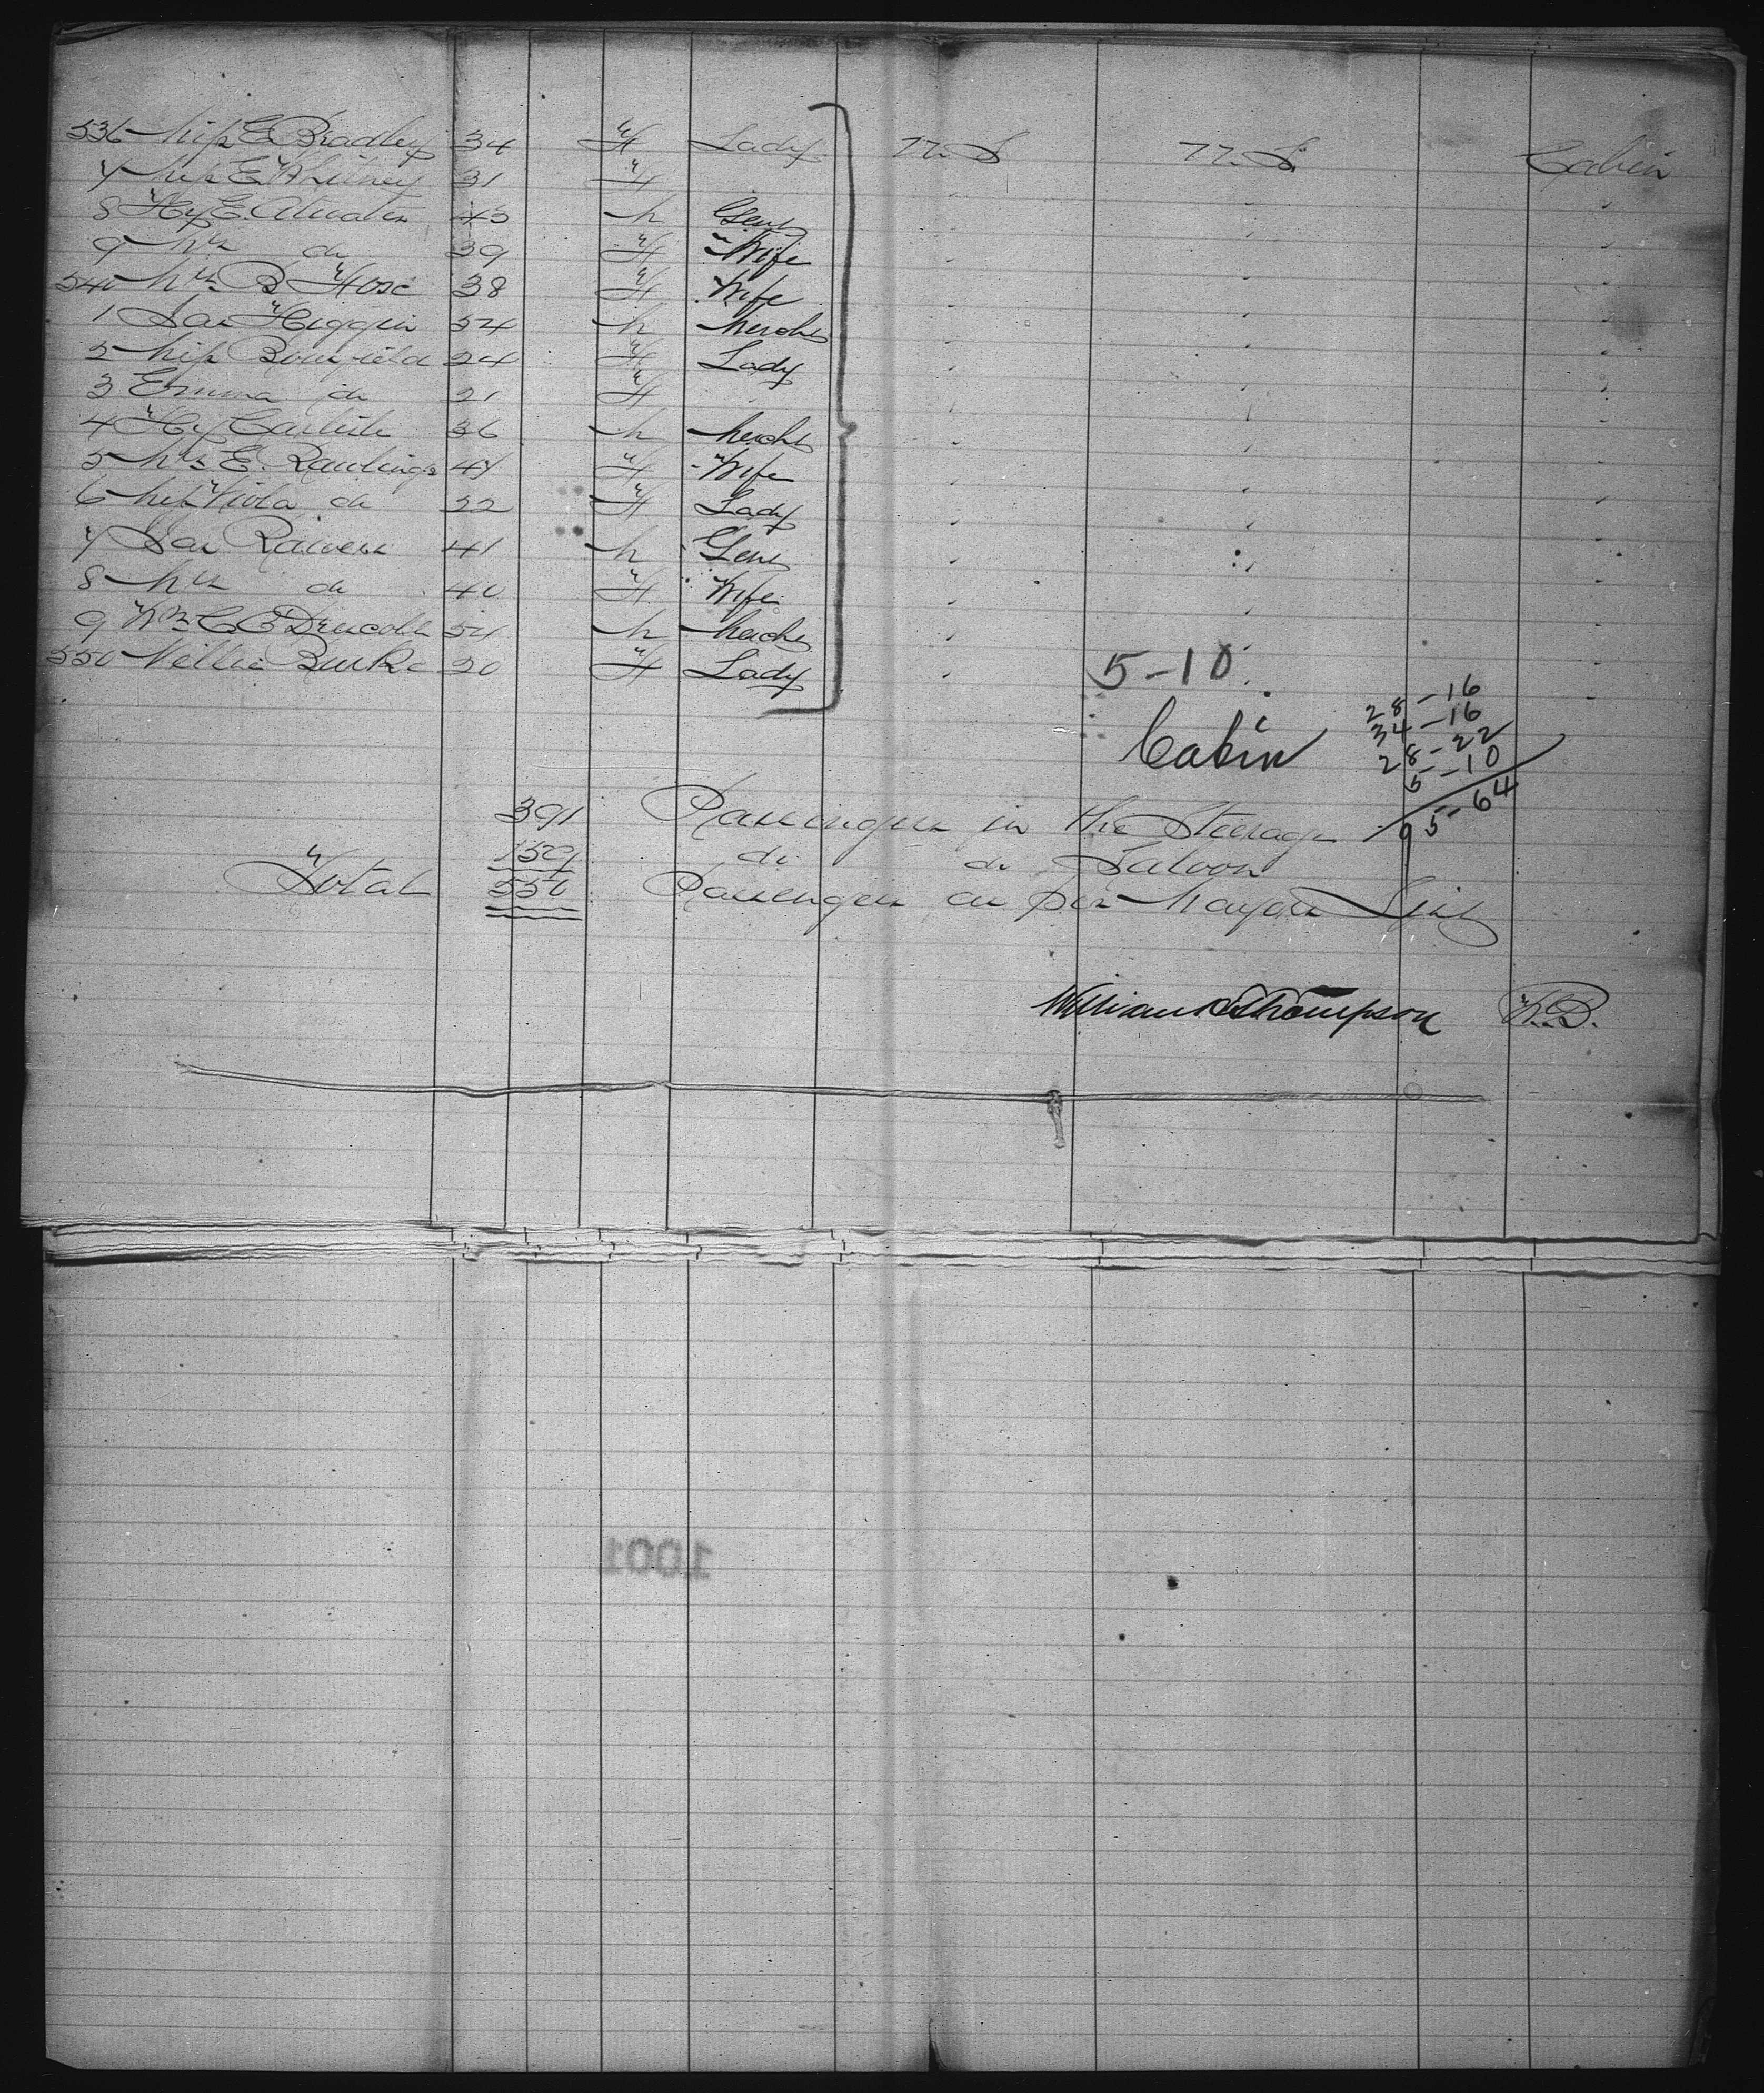 536 Miss E Bradley 34 F Lady U.S. U.S. Cabin
7 Miss E Whitney 31 F
8 Hy E. Atwater 43 M Gent
9 Mrs do 39 F Wife
540 Mrs B Hose 38 F Wife
1 Jas Higgin 54 M Mercht
2 Miss 24 F Lady
3 Emma do 21 F
4 Hy Carlisle 36 M Mercht
5 Mrs E. Rawlings 47 F Wife
6 Miss Viola do 22 F Lady
7 Jas 41 M Gent
8 Mrs do 40 F Wife
9 Wm C O'Driscoll 54 M Mercht
550 Nellie Burke 20 F Lady
5-10
Cabin
28-16
34-16
28-22
5-10
95-64
391 Passengers in the Steerage
159 do do Saloon
Total 550 Passengers as per Mayors List
William Thompson
1001